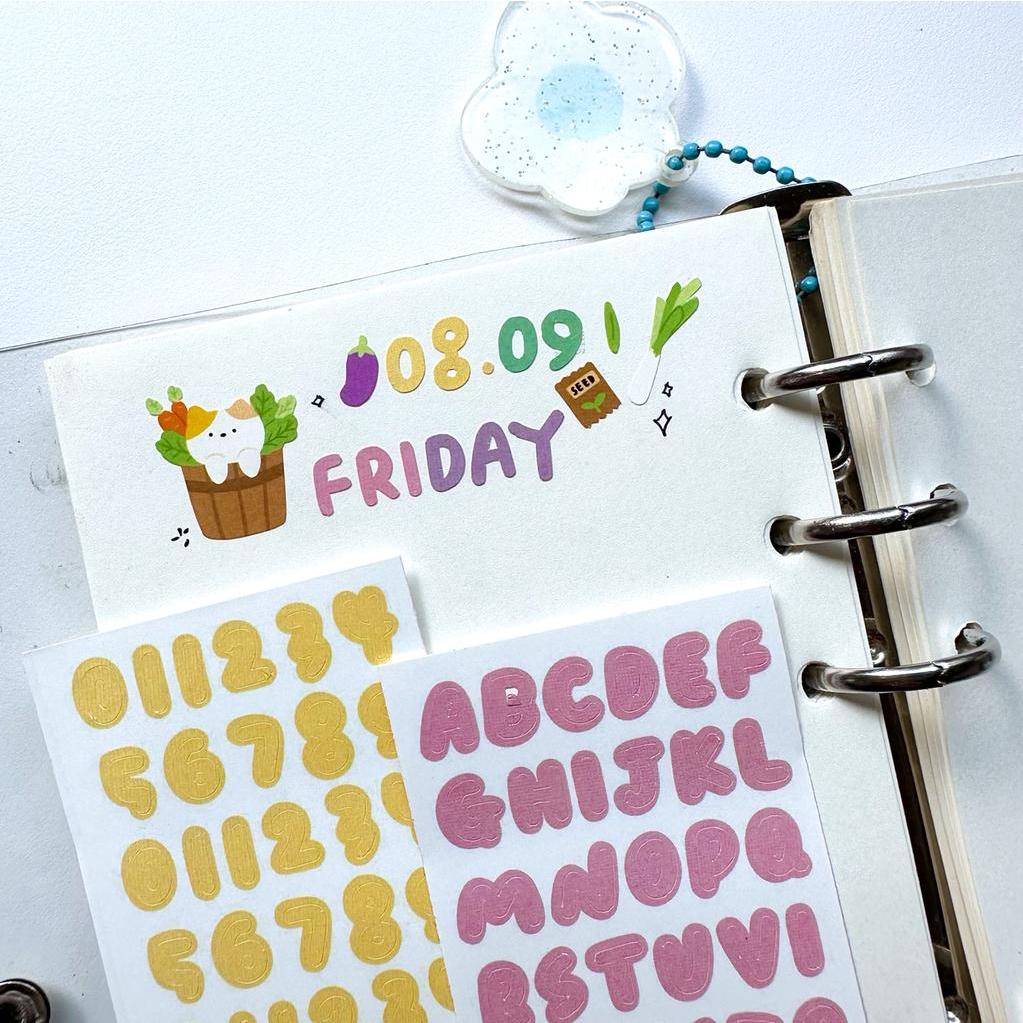 08.09
SEED
FRIDAY
011234
56789
01123
56789
ABCDEF
GHIJKL
MNOPQ
RSTUVI